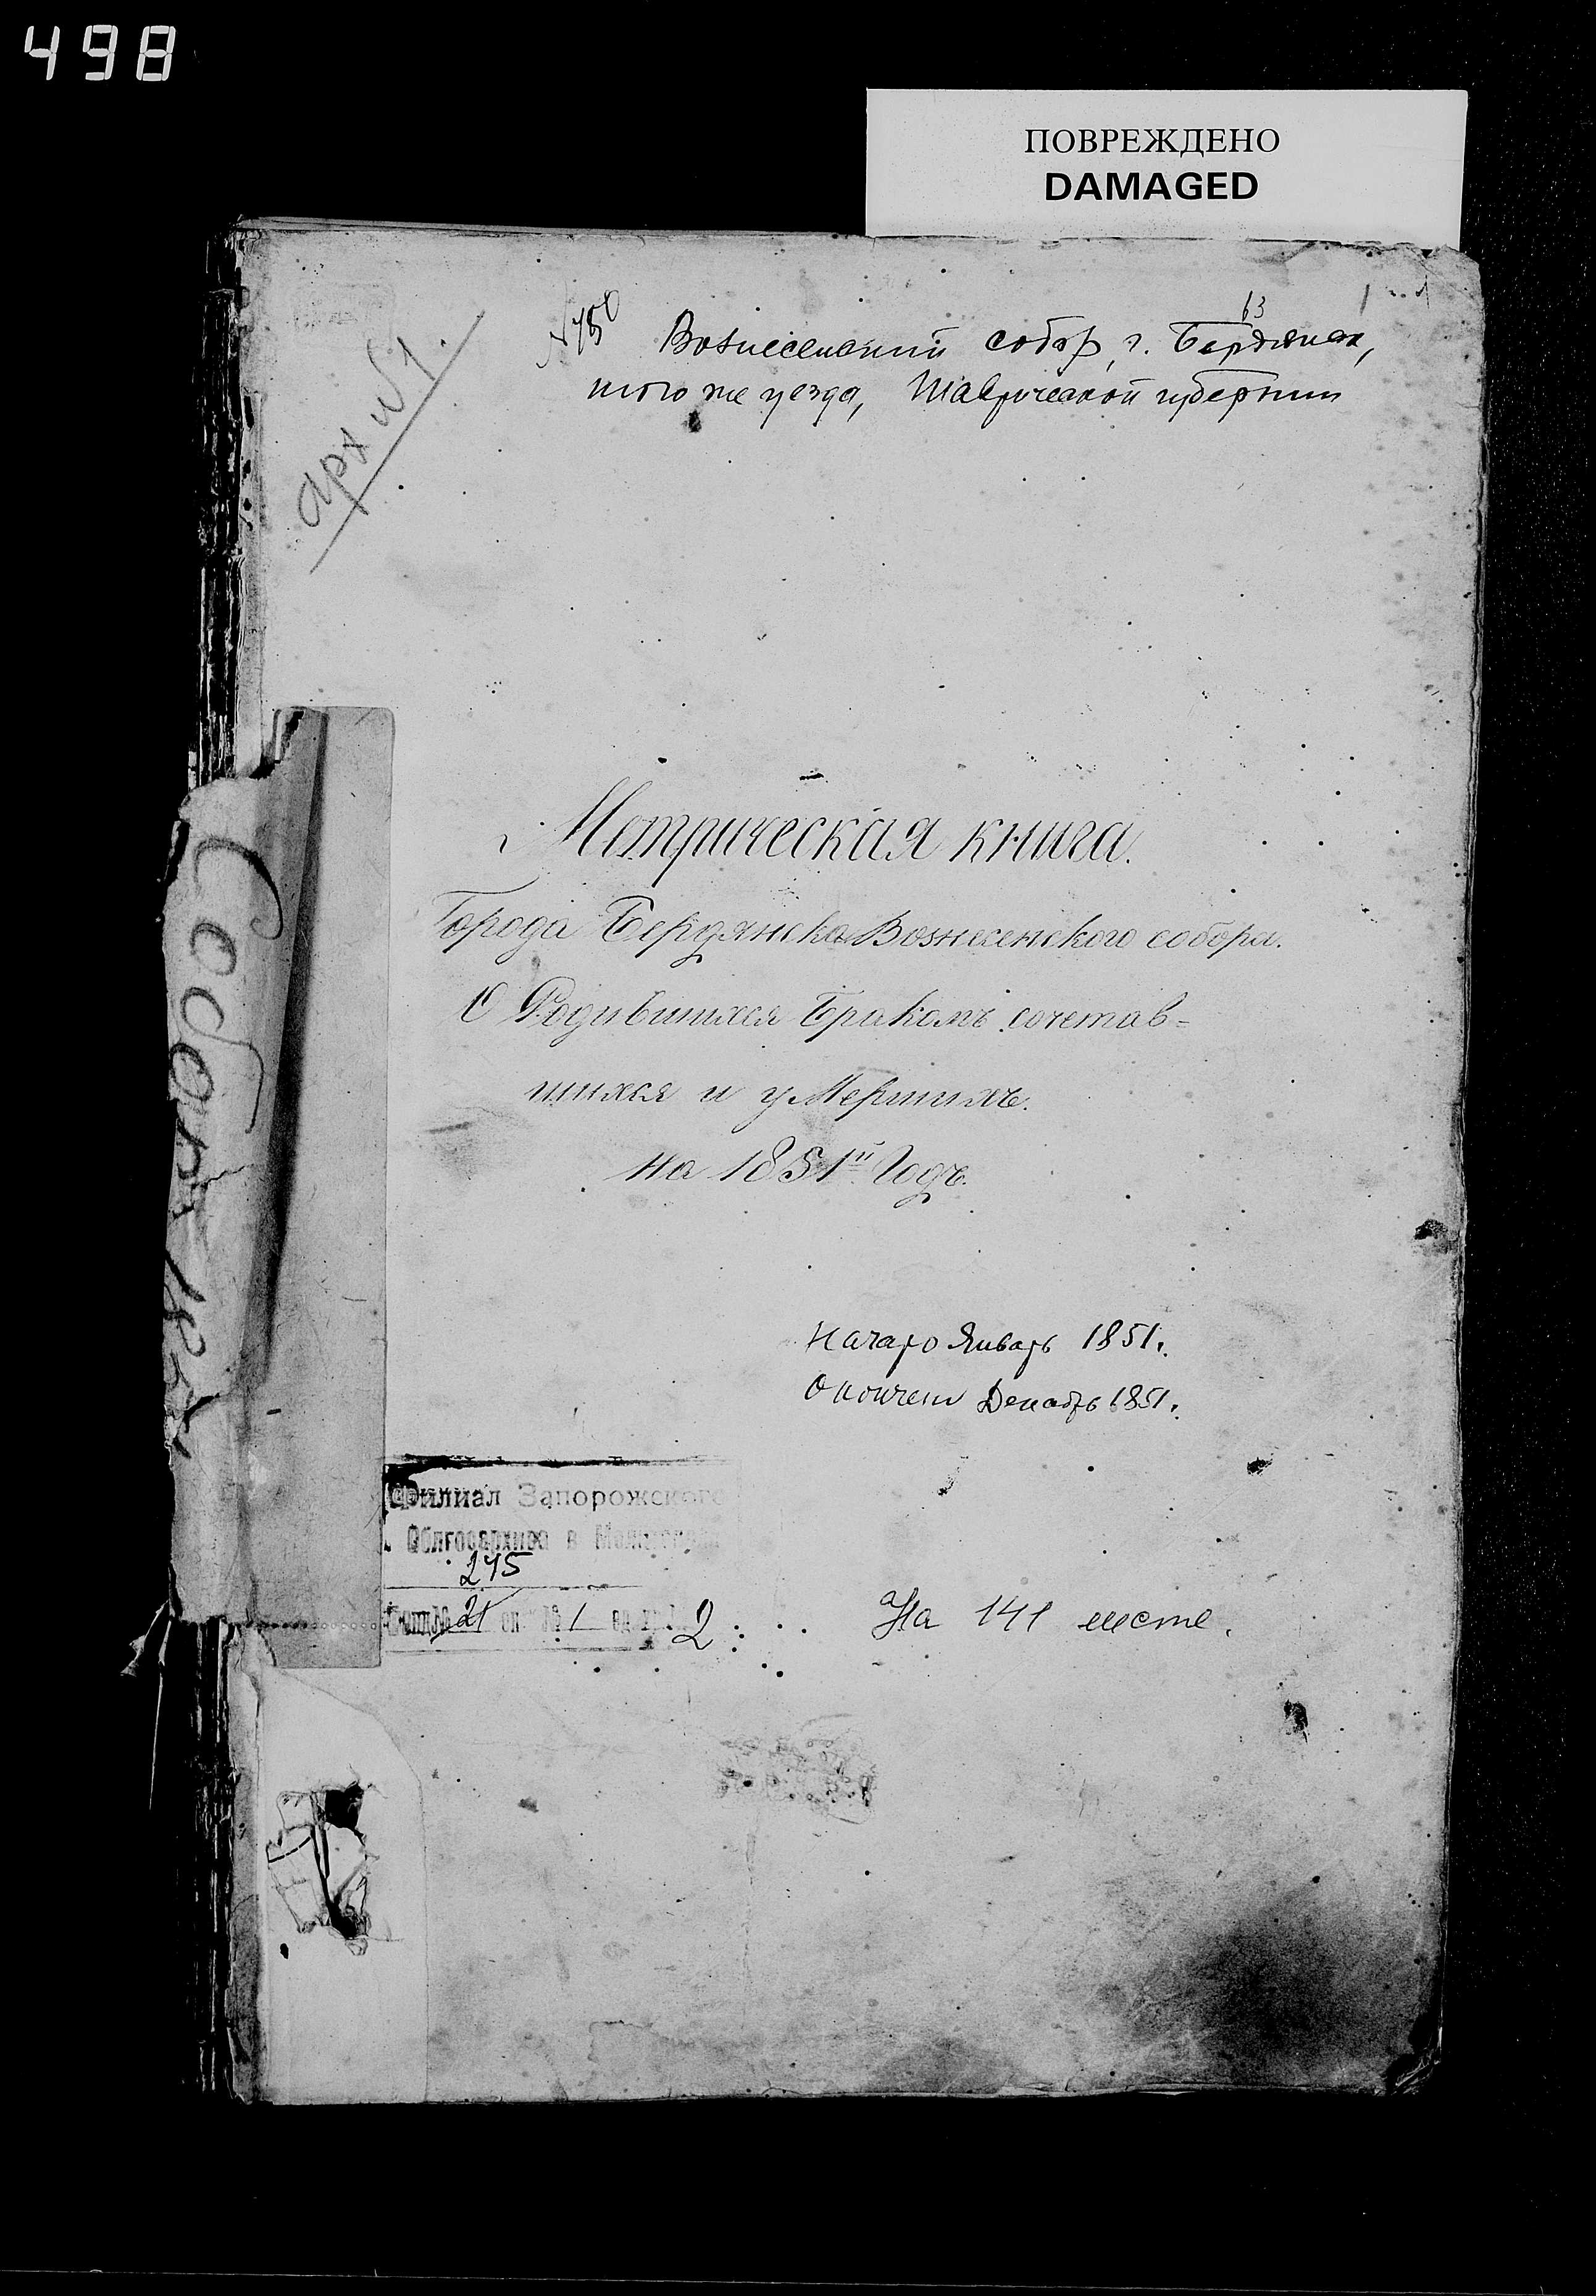 498
ПОВРЕЖДЕНО
DAMAGED
63
Вознесенский собор, г. Бердянск,
того же уезда, Таврической губернии
арх №1.
Метрическая книга.
Города Бердянска Вознесенского собора.
О Родившихся Бракомъ сочетав=
шихся и умершихъ.
на 1851й Годъ.
Соборъ 1851
Начало Январь 1851г.
Окончен Декабрь 1851г.
Филиал Запорожского
Облгосархива в
245
21 оп. № 1 ед. хр. 2
На 141 листе.